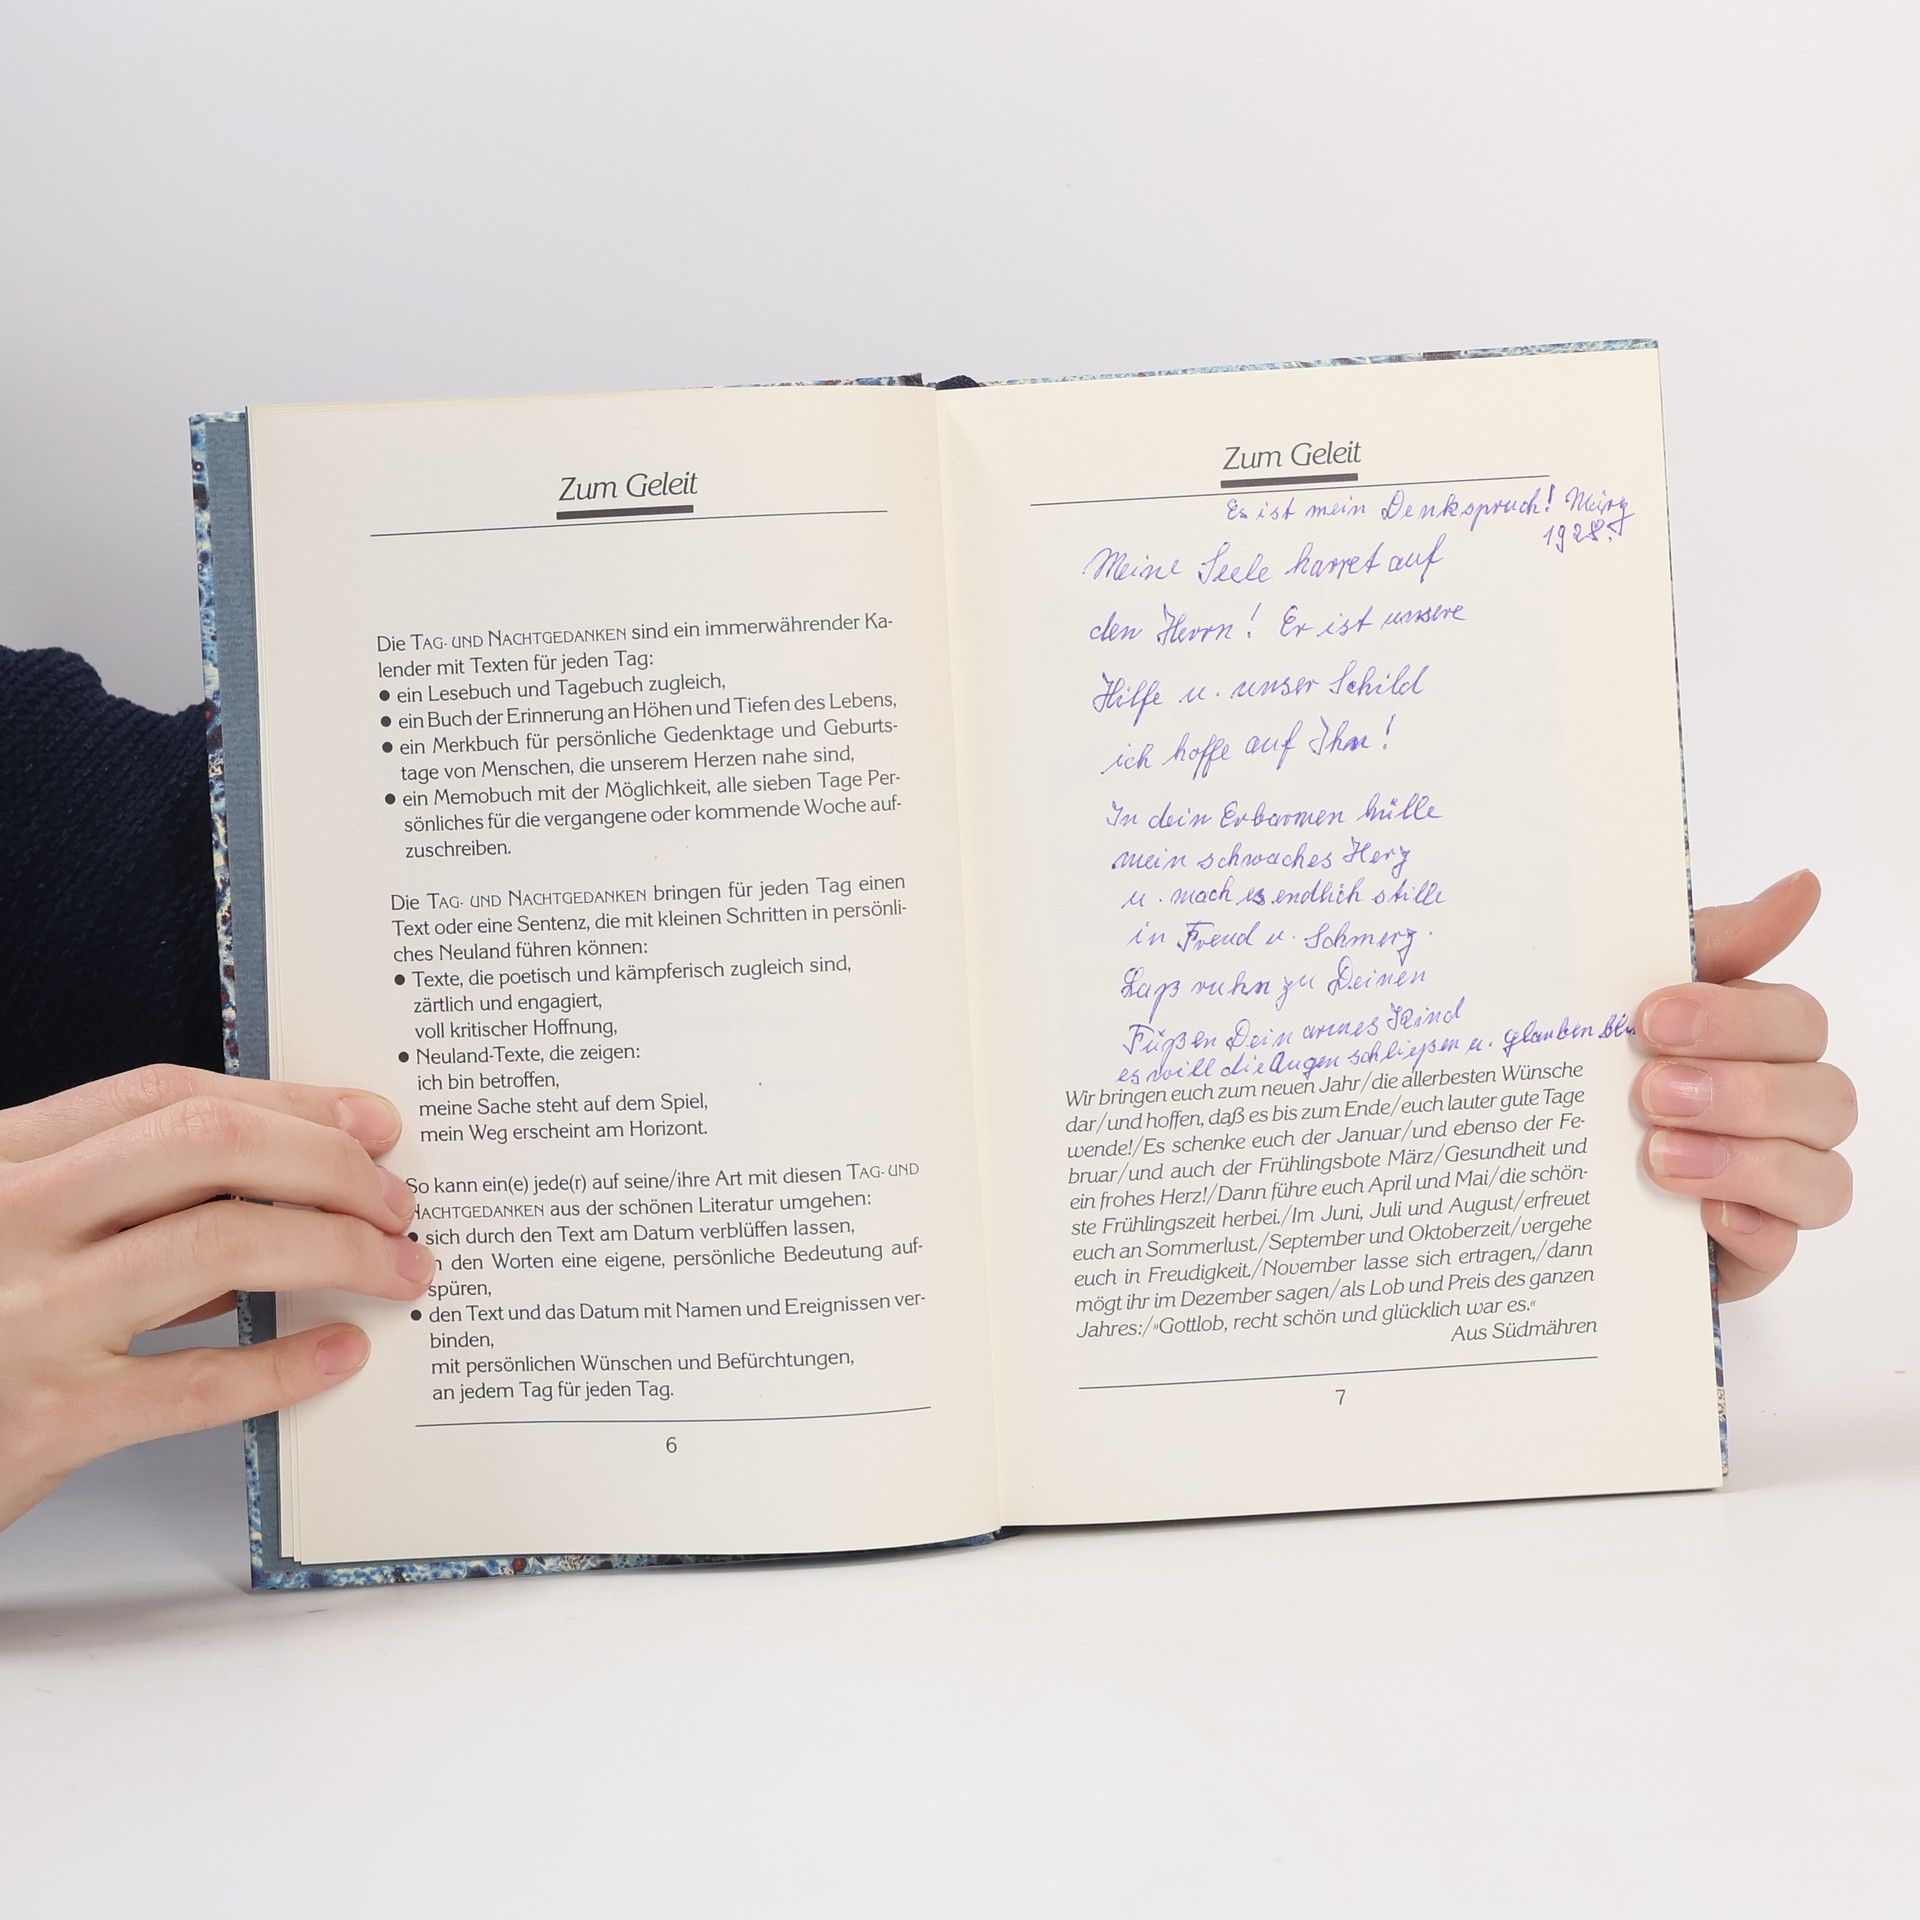 Zum Geleit
Die TAG- UND NACHTGEDANKEN sind ein immerwährender Ka-
lender mit Texten für jeden Tag:
● ein Lesebuch und Tagebuch zugleich,
● ein Buch der Erinnerung an Höhen und Tiefen des Lebens,
● ein Merkbuch für persönliche Gedenktage und Geburts-
tage von Menschen, die unserem Herzen nahe sind,
● ein Memobuch mit der Möglichkeit, alle sieben Tage Per-
sönliches für die vergangene oder kommende Woche auf-
zuschreiben.
Die TAG- UND NACHTGEDANKEN bringen für jeden Tag einen
Text oder eine Sentenz, die mit kleinen Schritten in persönli-
ches Neuland führen können:
● Texte, die poetisch und kämpferisch zugleich sind,
zärtlich und engagiert,
voll kritischer Hoffnung,
● Neuland-Texte, die zeigen:
ich bin betroffen,
meine Sache steht auf dem Spiel,
mein Weg erscheint am Horizont.
So kann ein(e) jede(r) auf seine/ihre Art mit diesen TAG- UND
NACHTGEDANKEN aus der schönen Literatur umgehen:
● sich durch den Text am Datum verblüffen lassen,
den Worten eine eigene, persönliche Bedeutung auf-
spüren,
● den Text und das Datum mit Namen und Ereignissen ver-
binden,
mit persönlichen Wünschen und Befürchtungen,
an jedem Tag für jeden Tag.
6
Zum Geleit
Es ist mein Denkspruch! März
1928.
Meine Seele harret auf
den Herrn! Er ist unsere
Hilfe u. unser Schild
ich hoffe auf Ihn!
In dein Erbarmen hülle
mein schwaches Herz
u. mach es endlich stille
in Freud u. Schmerz.
Laß ruhn zu Deinen
Füßen Dein armes Kind
es will die Augen schließen u. glauben
Wir bringen euch zum neuen Jahr/die allerbesten Wünsche
dar/und hoffen, daß es bis zum Ende/euch lauter gute Tage
wende!/Es schenke euch der Januar/und ebenso der Fe-
bruar/und auch der Frühlingsbote März/Gesundheit und
ein frohes Herz!/Dann führe euch April und Mai/die schön-
ste Frühlingszeit herbei./Im Juni, Juli und August/erfreuet
euch an Sommerlust./September und Oktoberzeit/vergehe
euch in Freudigkeit./November lasse sich ertragen,/dann
mögt ihr im Dezember sagen/als Lob und Preis des ganzen
Jahres:/»Gottlob, recht schön und glücklich war es.«
Aus Südmähren
7